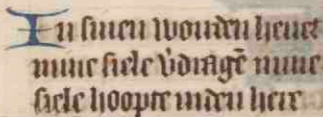 In sinen wouden heuet
mine siele v̉dragē mine
siele hoopte inden here